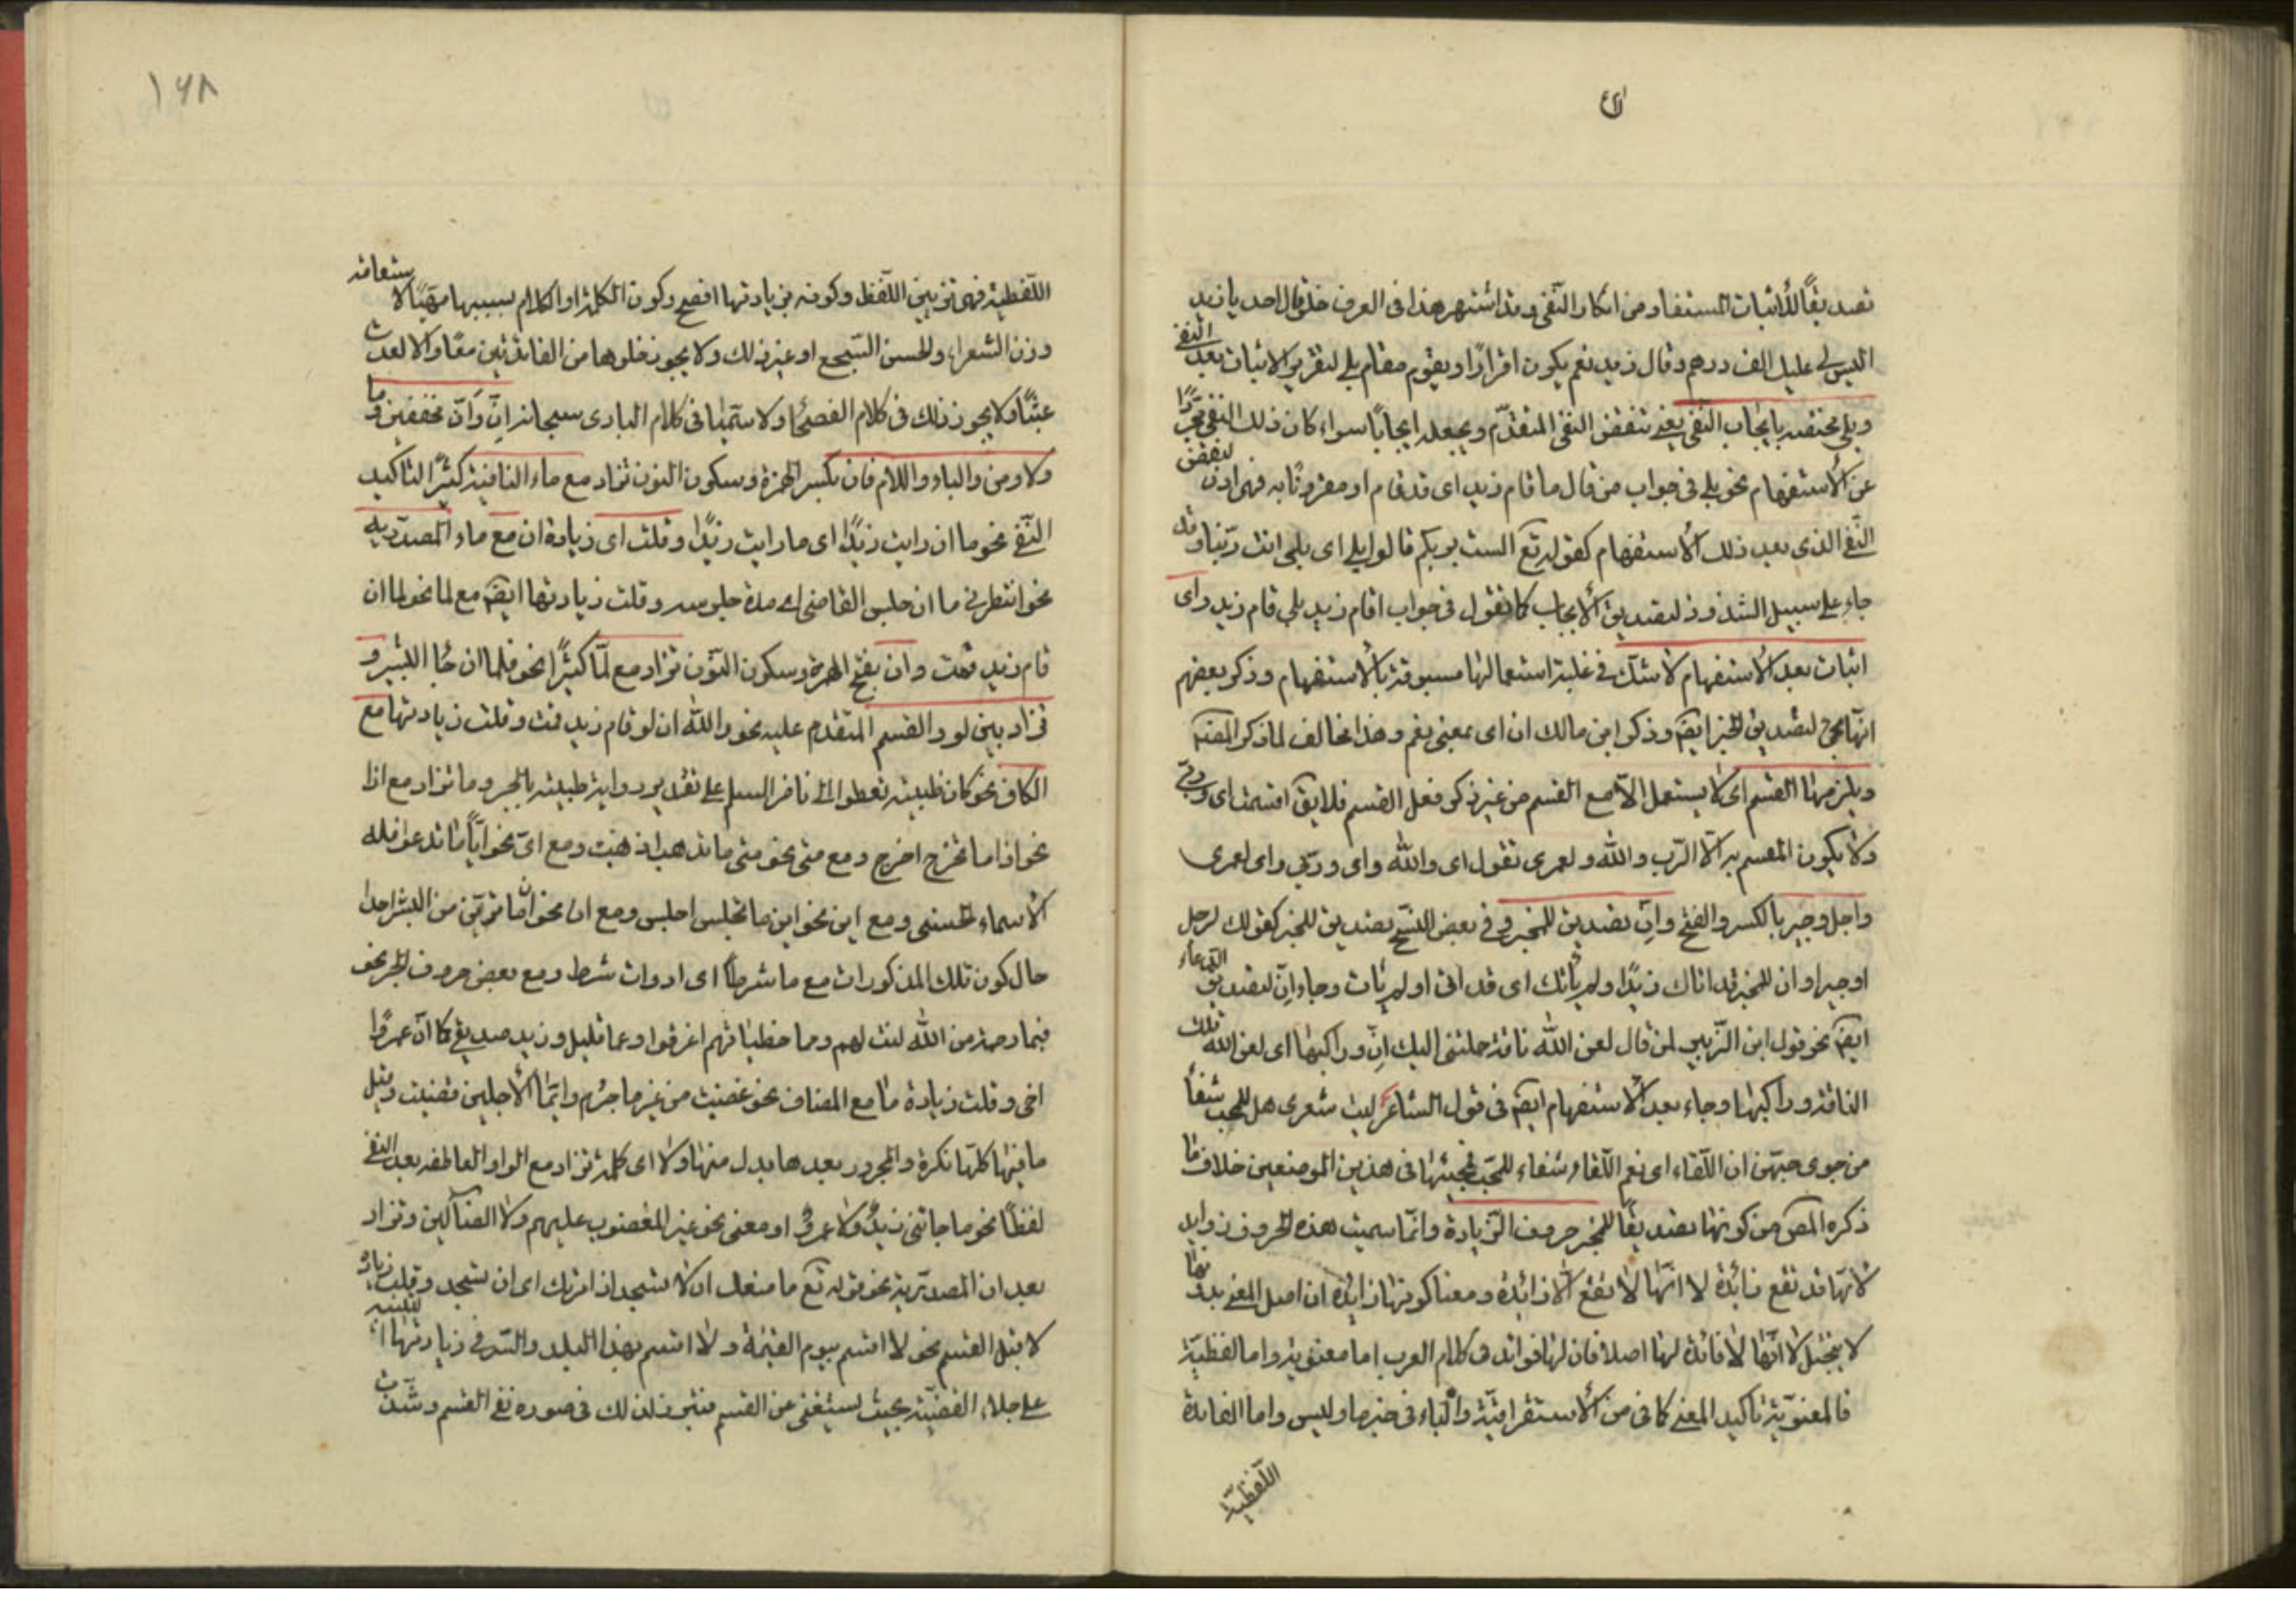 تصديقًا للأثبات المستفاد من انكار النفى وقد اشتهر هذا فى العرف فلو قال احد يا زيد
اليس لى عليك الف درهم وقال زيد نعم يكون اقرارًا ويقوم مقام بلى لتقرير الاثبات بعد النفى
وبلى مختصة بايجاب النفى يعنى تنقض النفى المتقدّم ويجعله ايجابًا سواء كان ذلك النفى مجردًا
عن الأستفهام نحو بلى فى جواب من قال ما قام زيد اى قد قام او مقرونًا به فهى اذن لنقض
النّفى الذى بعد ذلك الأستفهام كقوله تع الست بربكم قالوا بلى اى بلى انت ربّنا وقد
جاء على سبيل الشذوذ لتصديق الأيجاب كما تقول فى جواب اقام زيد بلى قام زيد واى
اثبات بعد الأستفهام لا شك فى غلبة استعمالها مسبوقة بالأستفهام وذكر بعضهم
انّها تجئ لتصديق الخبر ايضا وذكر ابن مالك ان اى بمعنى نعم وهذا مخالف لما ذكر المصنف
ويلزمها القسم اى لا يستعمل الّا مع القسم من غير ذكر فعل القسم فلا يق اقسمت اى وربّى
ولا يكون المقسم به الّا الرّب والله ولعمرى تقول اى والله واى وربّى واى لعمرى
واجل وجير بالكسر والفتح وانّ تصديق للمخبر وفى بعض النسخ تصديق للخبر كقولك اجل
او جير او ان للمخبر قد اتاك زيدًا ولم يأتك اى قد اتى او لم يأت وجاء انّ لتصديق الدعاء
ايضا نحو قول ابن الزّبير لمن قال لعن الله ناقة حملتنى اليك انّ وراكبها اى لعن الله تلك
الناقة وراكبها وجاء بعد الأستفهام ايضا فى قول الشاعر ليت شعرى هل للمحب شفأ
من جوى حبّهن ان اللّقاء اى نعم اللّقاء شفاء للمحبّ فمجيئها فى هذين الموضعين خلاف ما
ذكره المص من كونها تصديقًا للمخبر حروف الزّيادة وانّما سميت هذه الحروف زوايد
لانّها قد تقع زائدة لا انّها لا تقع الّا زائدة ومعنا كونها زائدة ان اصل المعنى بدونها
لا يختل لا انّها لا فائدة لها اصلا فان لها فوائد فى كلام العرب اما معنوية واما لفظيّة
فالمعنويّة تأكيد المعنى كما فى من الأستغراقيّة والباء فى خبر ما وليس واما الفايدة
اللّفظيّة
١٦٨
اللّفظية فهى تزيين اللّفظ وكونه بزيادتها افصح وكون الكلمة او الكلام بسببها مهيّئًا لا ستقامة
وزن الشعر او لحسن السّجع او غير ذلك ولا يجوز خلوها من الفائدتين معًا والا لعدت
عبثًا ولا يجوز ذلك فى كلام الفصحاء ولا سيّما فى كلام البارى سبحانه ان وان مخففين وما
ولا ومن والباء واللام فان بكسر الهمزة وسكون النون تزاد مع ماء النافية كثيرًا لتاكيد
النّفى نحو ما ان رايت زيدًا اى ما رايت زيدًا وقلت اى زيادة ان مع ماء المصدريه
نحو انتظرنى ما ان جلس القاضى اى مدة جلوسه وقلت زيادتها ايضا مع لما نحو لما ان
قام زيد قمت وان بفتح الهمزة وسكون النّون تزاد مع لمّا كثيرًا نحو فلما ان جاء البشير و
تزاد بين لو والقسم المتقدم عليه نحو والله ان لو قام زيد قمت وقلت زيادتها مع
الكاف نحو كان ظبية تعطوا الى ناضر السلم على تقدير رواية ظبية بالجر وما تزاد مع اذا
نحو اذا ما تخرج اخرج ومع متى نحو متى ما تذهب اذهب ومع اىّ نحو ايّا ما تدعوا فله
الأسماء الحسنى ومع اين نحو اين ما تجلس اجلس ومع ان نحو امّا ترينّ من البشر احدا
حال كون تلك المذكورات مع ما شرطًا اى ادوات شرط ومع بعض حروف الجر نحو
فبما رحمة من الله لنت لهم ومما خطيئاتهم اغرقوا وعما قليل وزيد صديقى كما انّ عمروًا
اخى وقلت زيادة ما مع المضاف نحو غضبت من غير ما جرم وايّما الأجلين قضيت وقيل
ما فيها كلها نكرة والمجرور بعدها بدل منها ولا اى كلمة تزاد مع الواو العاطفه بعد النفى
لفظًا نحو ما جائنى زيدٌ ولا عمروٌ او معنى نحو غير المغضوب عليهم ولا الضآلين وتزاد
بعد ان المصدريّة نحو قوله تع ما منعك ان لا تسجد اذ امرتك اى ان تسجد وقلت زيادة
لا قبل القسم نحو لا اقسم بيوم القيمة ولا اقسم بهذا البلد والسّر فى زيادتها التنبيه
على جلاء القضيّة بحيث يستغنى عن القسم فتبرز لذلك فى صورة نفى القسم وشذّت